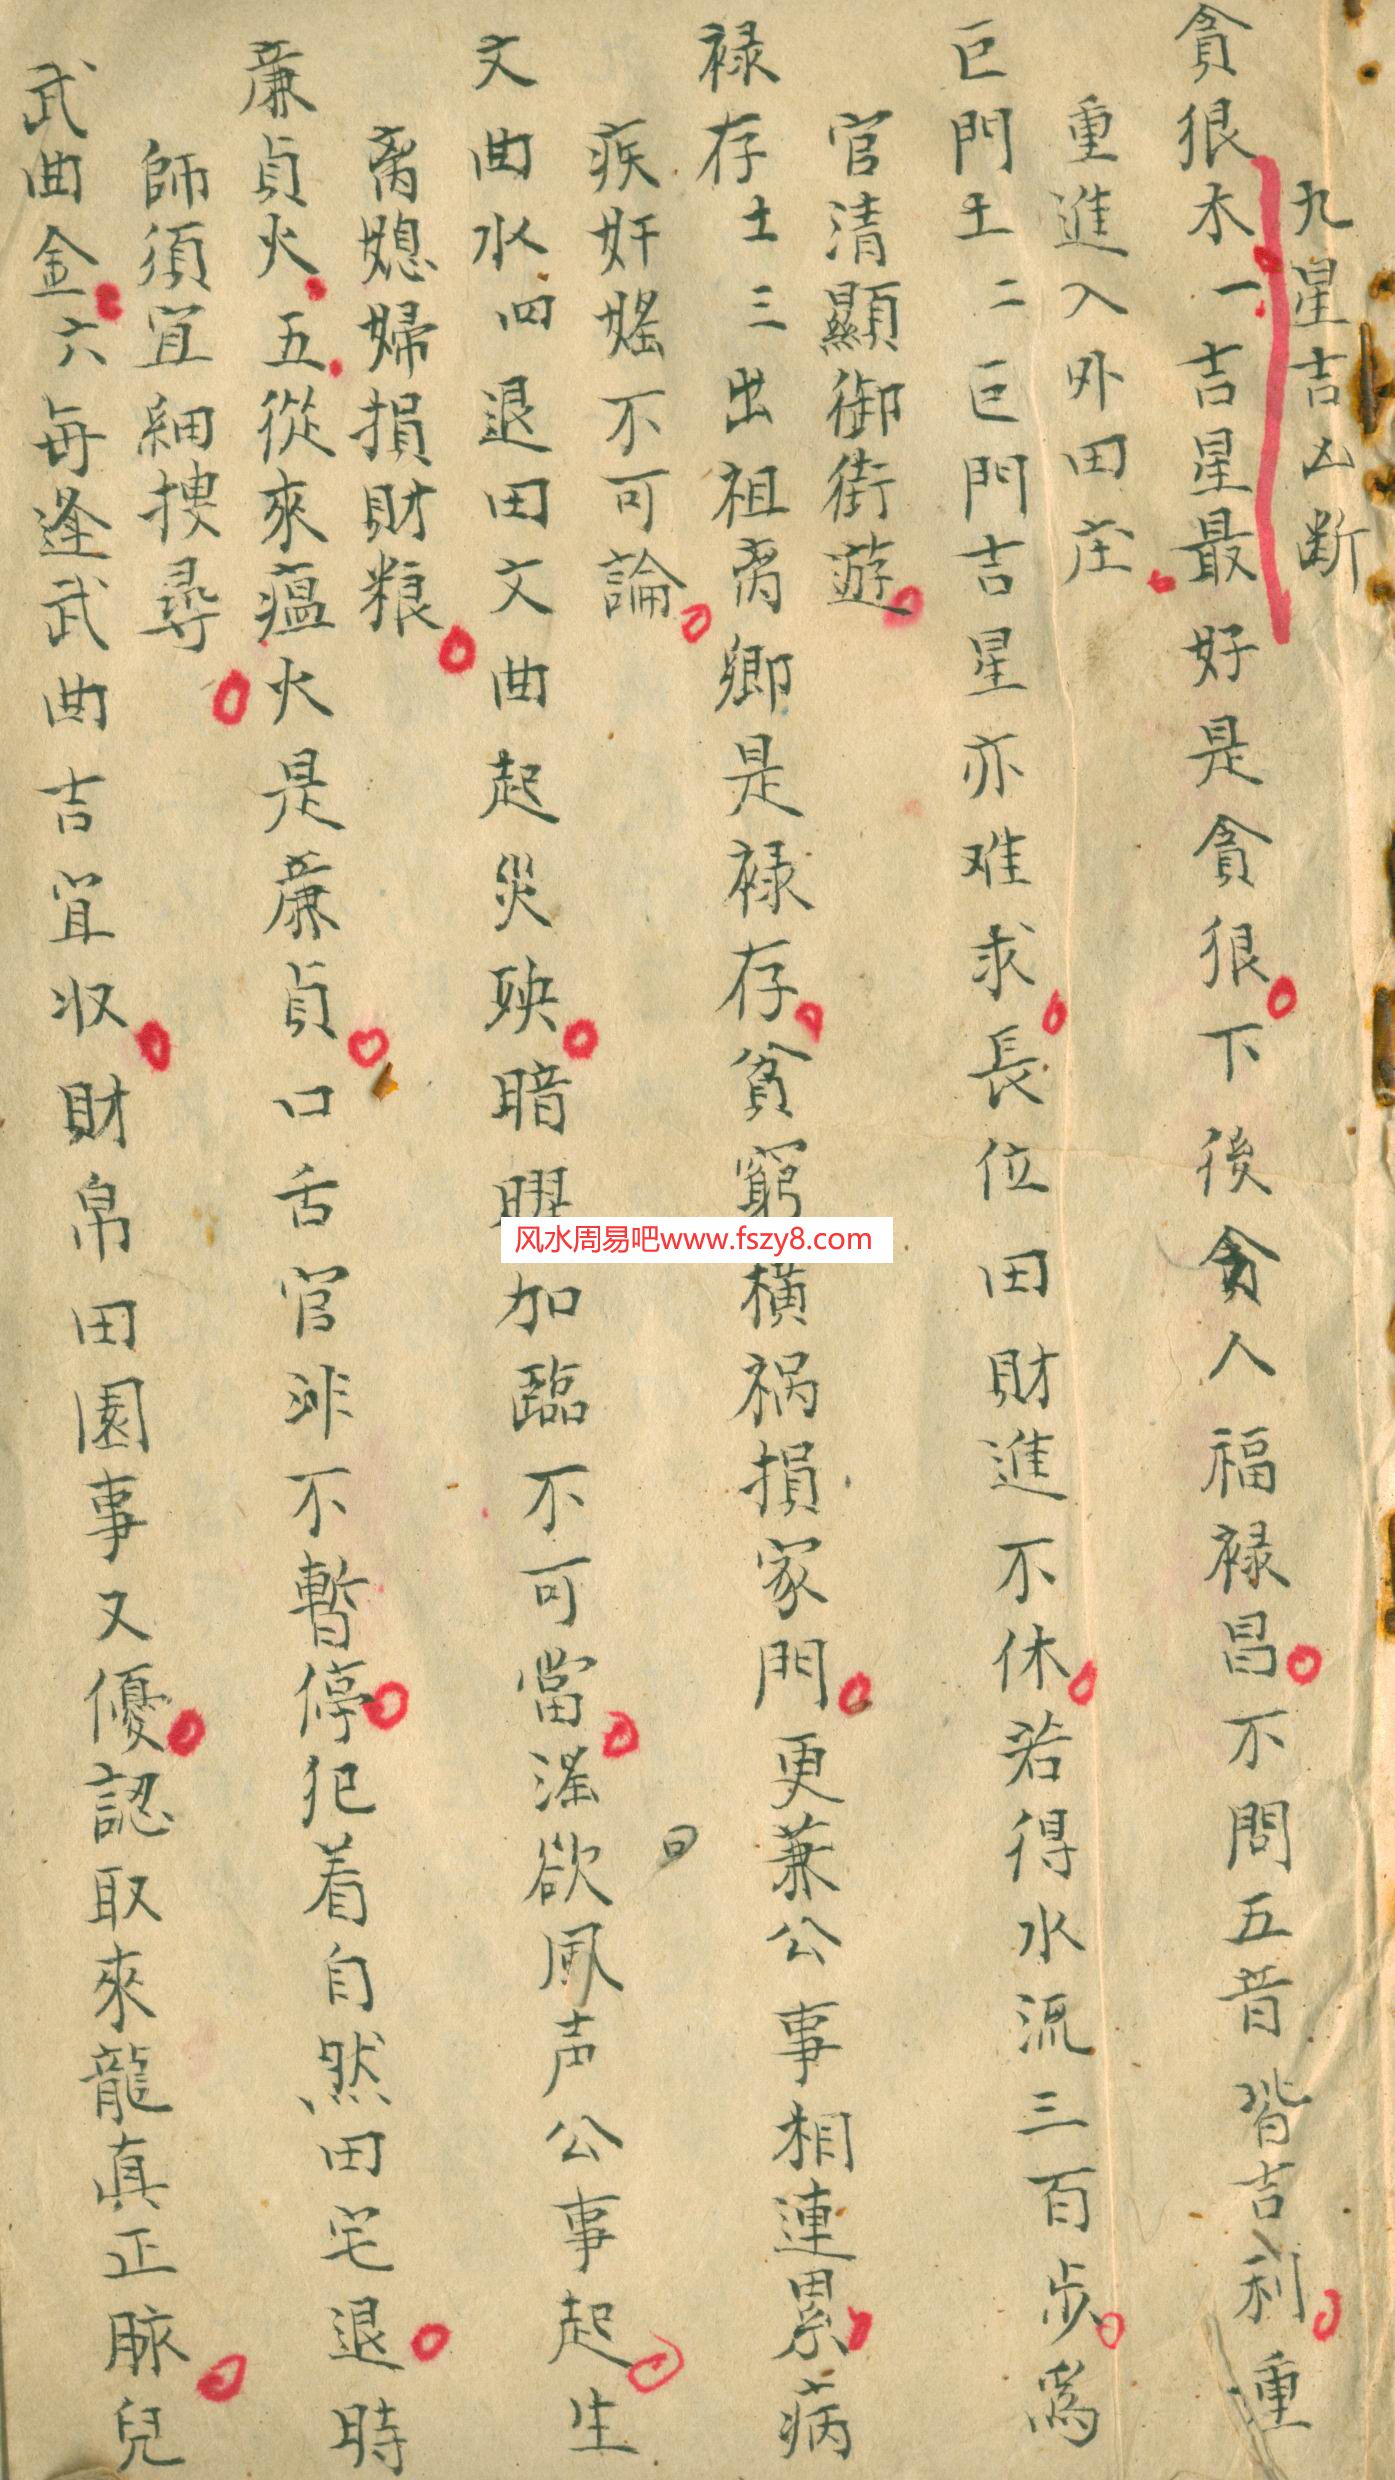 九星吉凶断
貪狠木一吉星最好是貪狠下後貪人福禄昌不問五音皆吉利重
重進入外田庄
巨門土二巨門吉星亦难求長位田財進不休若得水流三百步爲
官清顯御街遊
禄存土三出祖离鄉是禄存貧窮横祸損家門更兼公事相連累病
疾奸婬不可論
文曲水四退田文曲起災殃暗曜加臨不可當滛欲风声公事起生
离媳婦損財粮
亷貞火五從來瘟火是亷貞口舌官非不暫停犯着自然田宅退時
師須宜細搜尋
武曲金六每逢武曲吉宜収財帛田園事又優認取來龍真正脉兒
风水周易吧www.fszy8.com